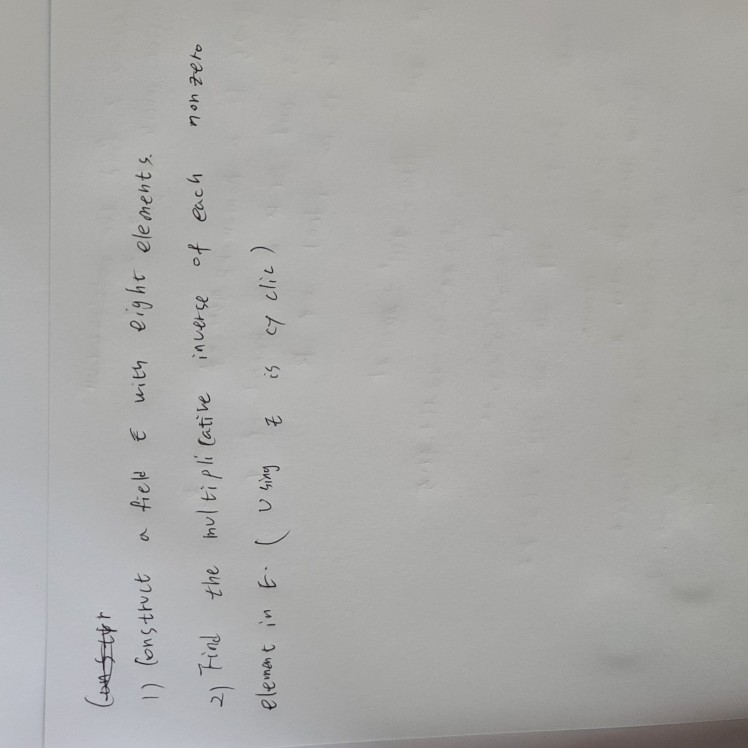 1) Construct a field E with eight elements.
2) Find the multiplicative inverse of each nonzero
element in E. (Using E is cyclic)